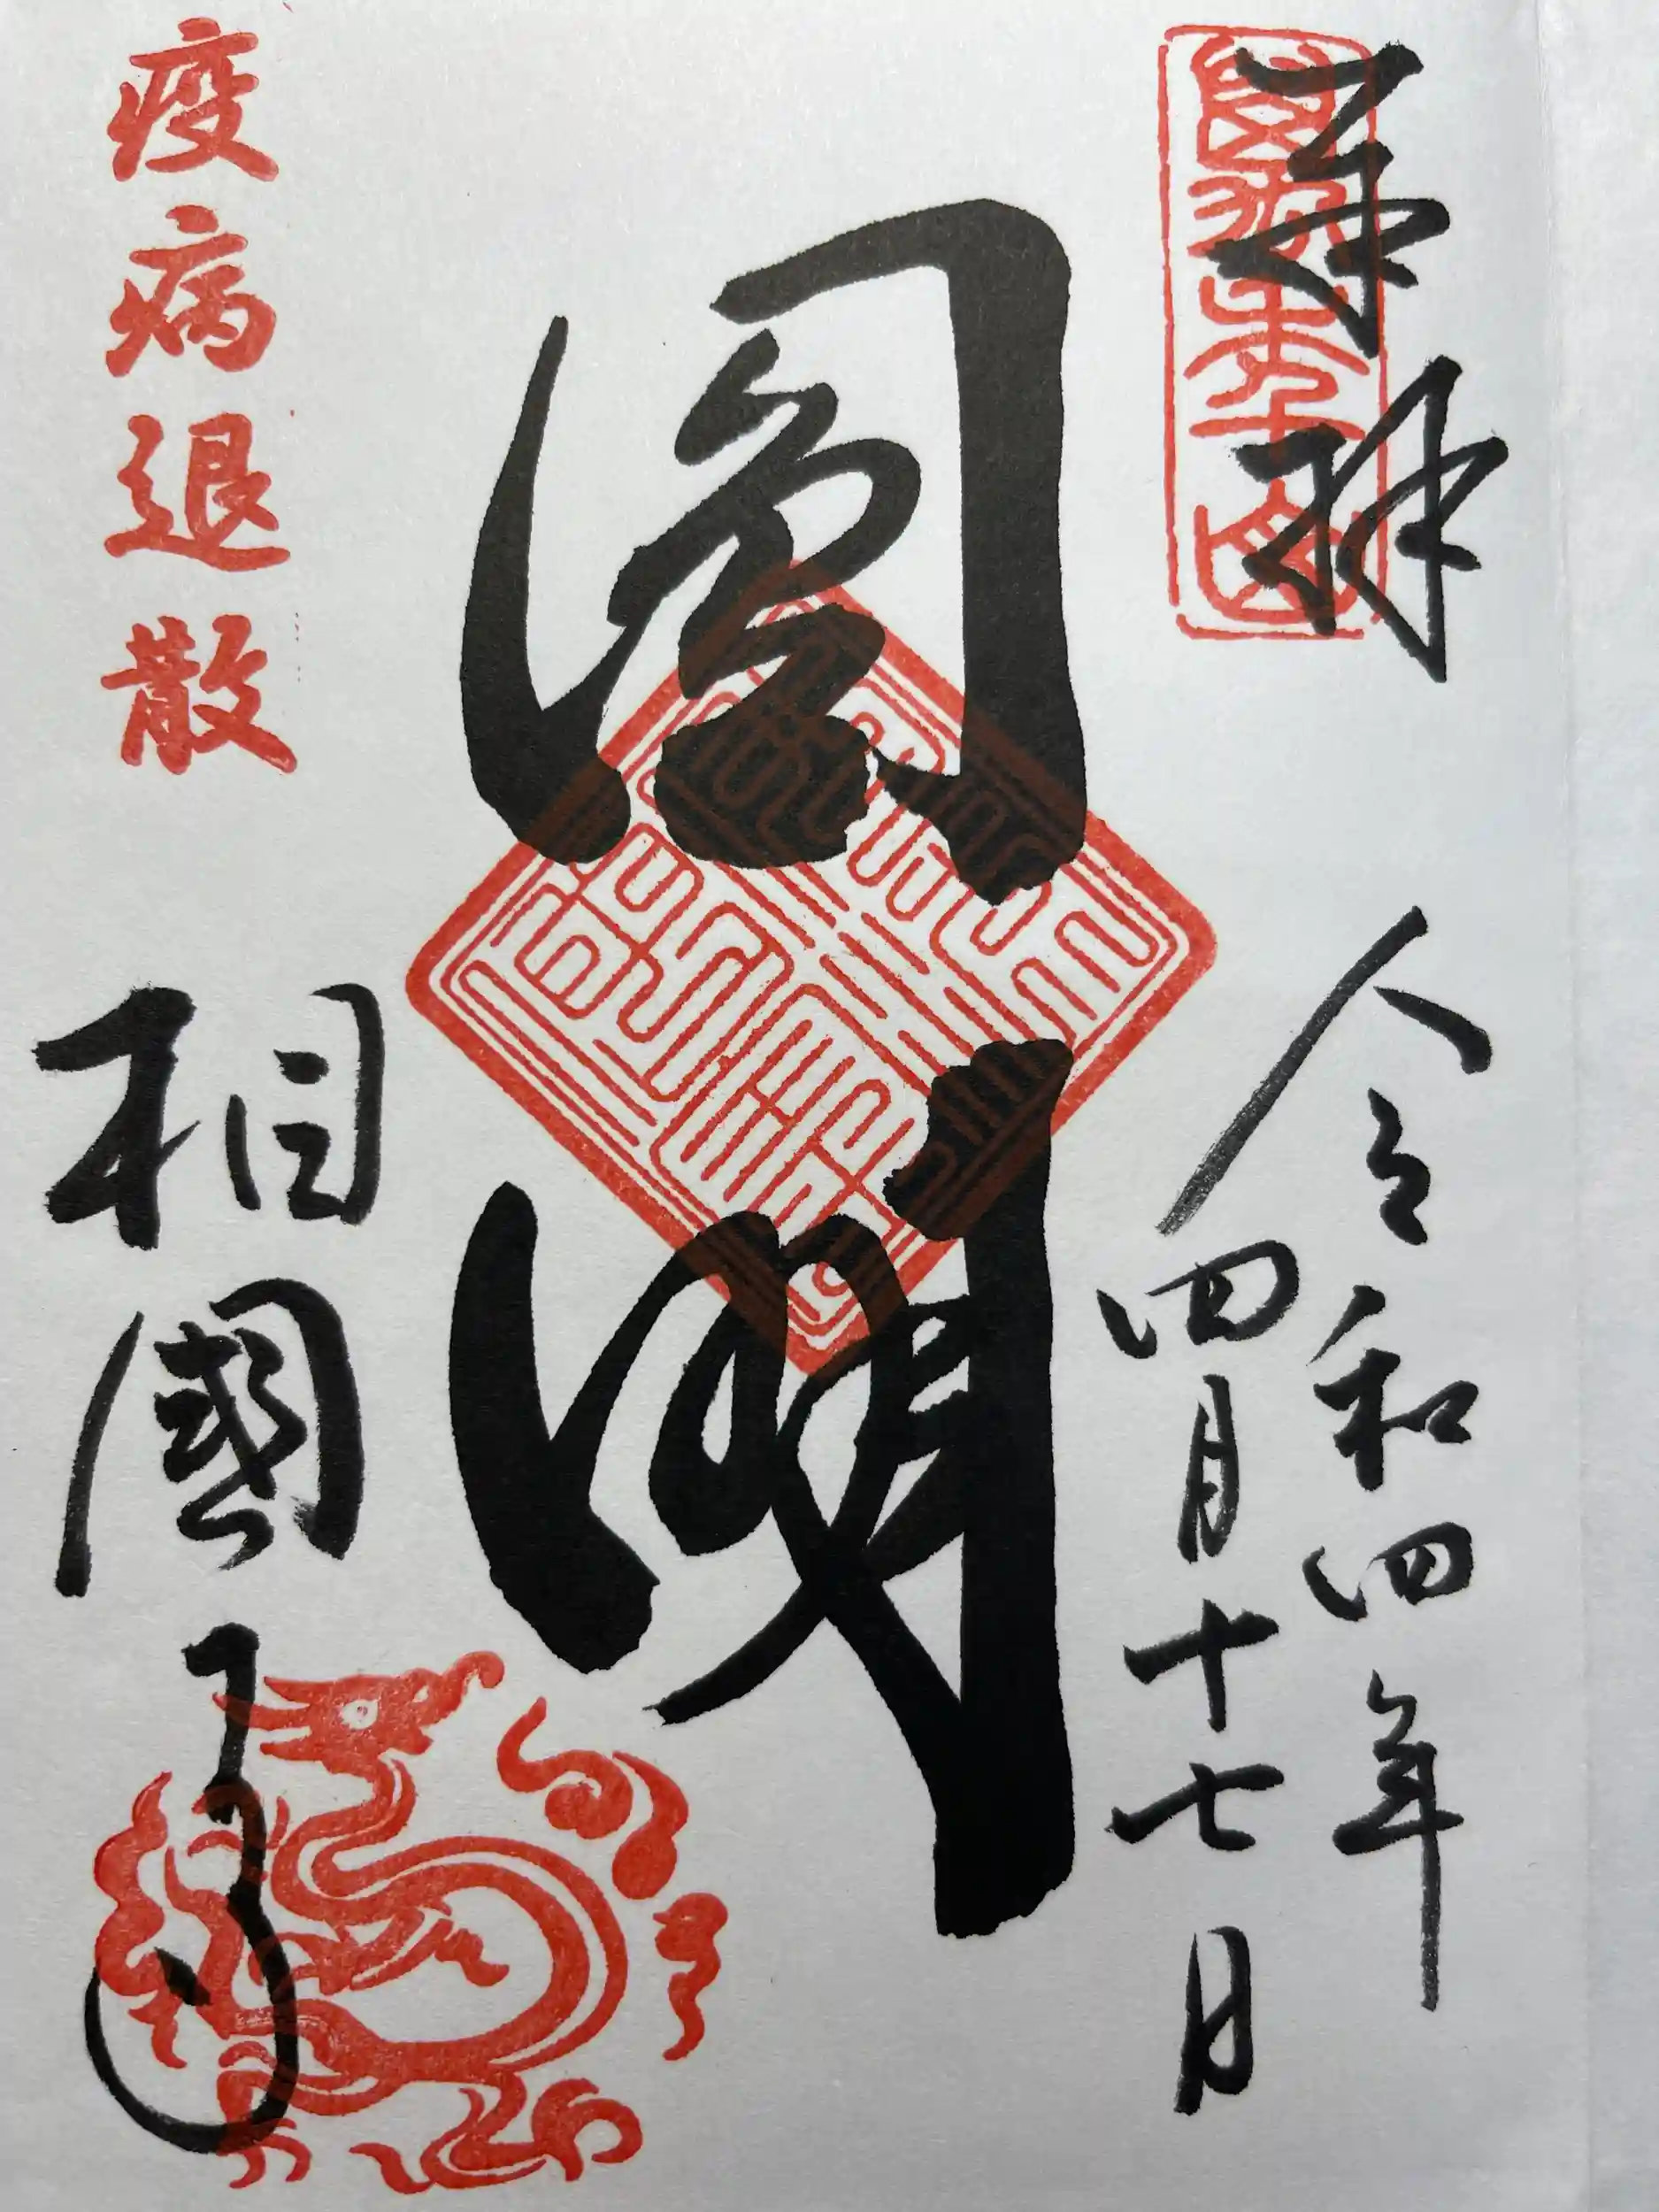 奉拝
令和四年
四月十七日
圓明
疫病退散
相國寺